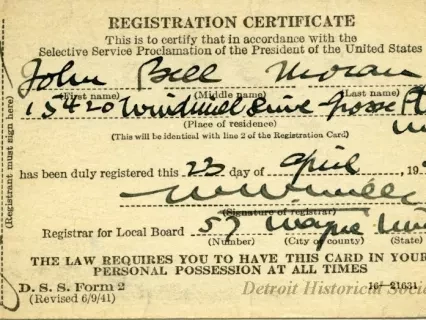 REGISTRATION CERTIFICATE
This is to certify that in accordance with the
Selective Service Proclamation of the President of the United States
John Bell Moran
(First name) (Middle name) (Last name)
15420 Windmill Drive Grosse
(Place of residence)
(This will be identical with line 2 of the Registration Card)
has been duly registered this 23 day of April, 19
(Signature of registrar)
Registrar for Local Board 57 Wayne
(Number) (City or county) (State)
THE LAW REQUIRES YOU TO HAVE THIS CARD IN YOUR
PERSONAL POSSESSION AT ALL TIMES
D. S. S. Form 2
(Revised 6/9/41)
16—21631
(Registrant must sign here)
Detroit Historical Socie